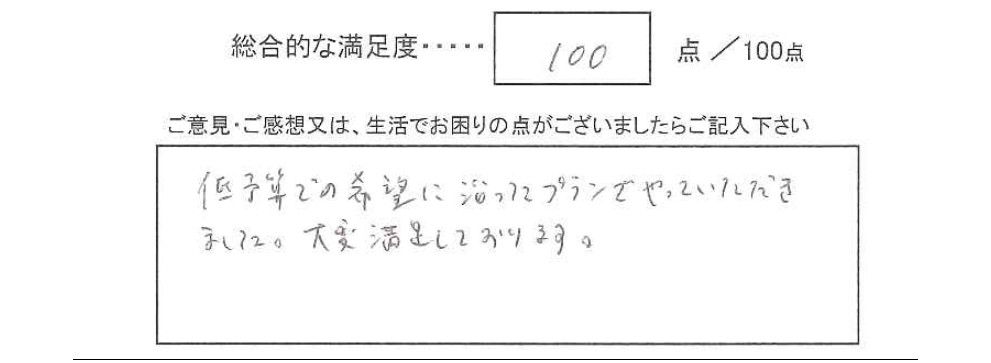 総合的な満足度・・・・・ 100 点 ／100点
ご意見・ご感想又は、生活でお困りの点がございましたらご記入下さい
低予算での希望に沿ったプランでやっていただき
ました。大変満足しております。